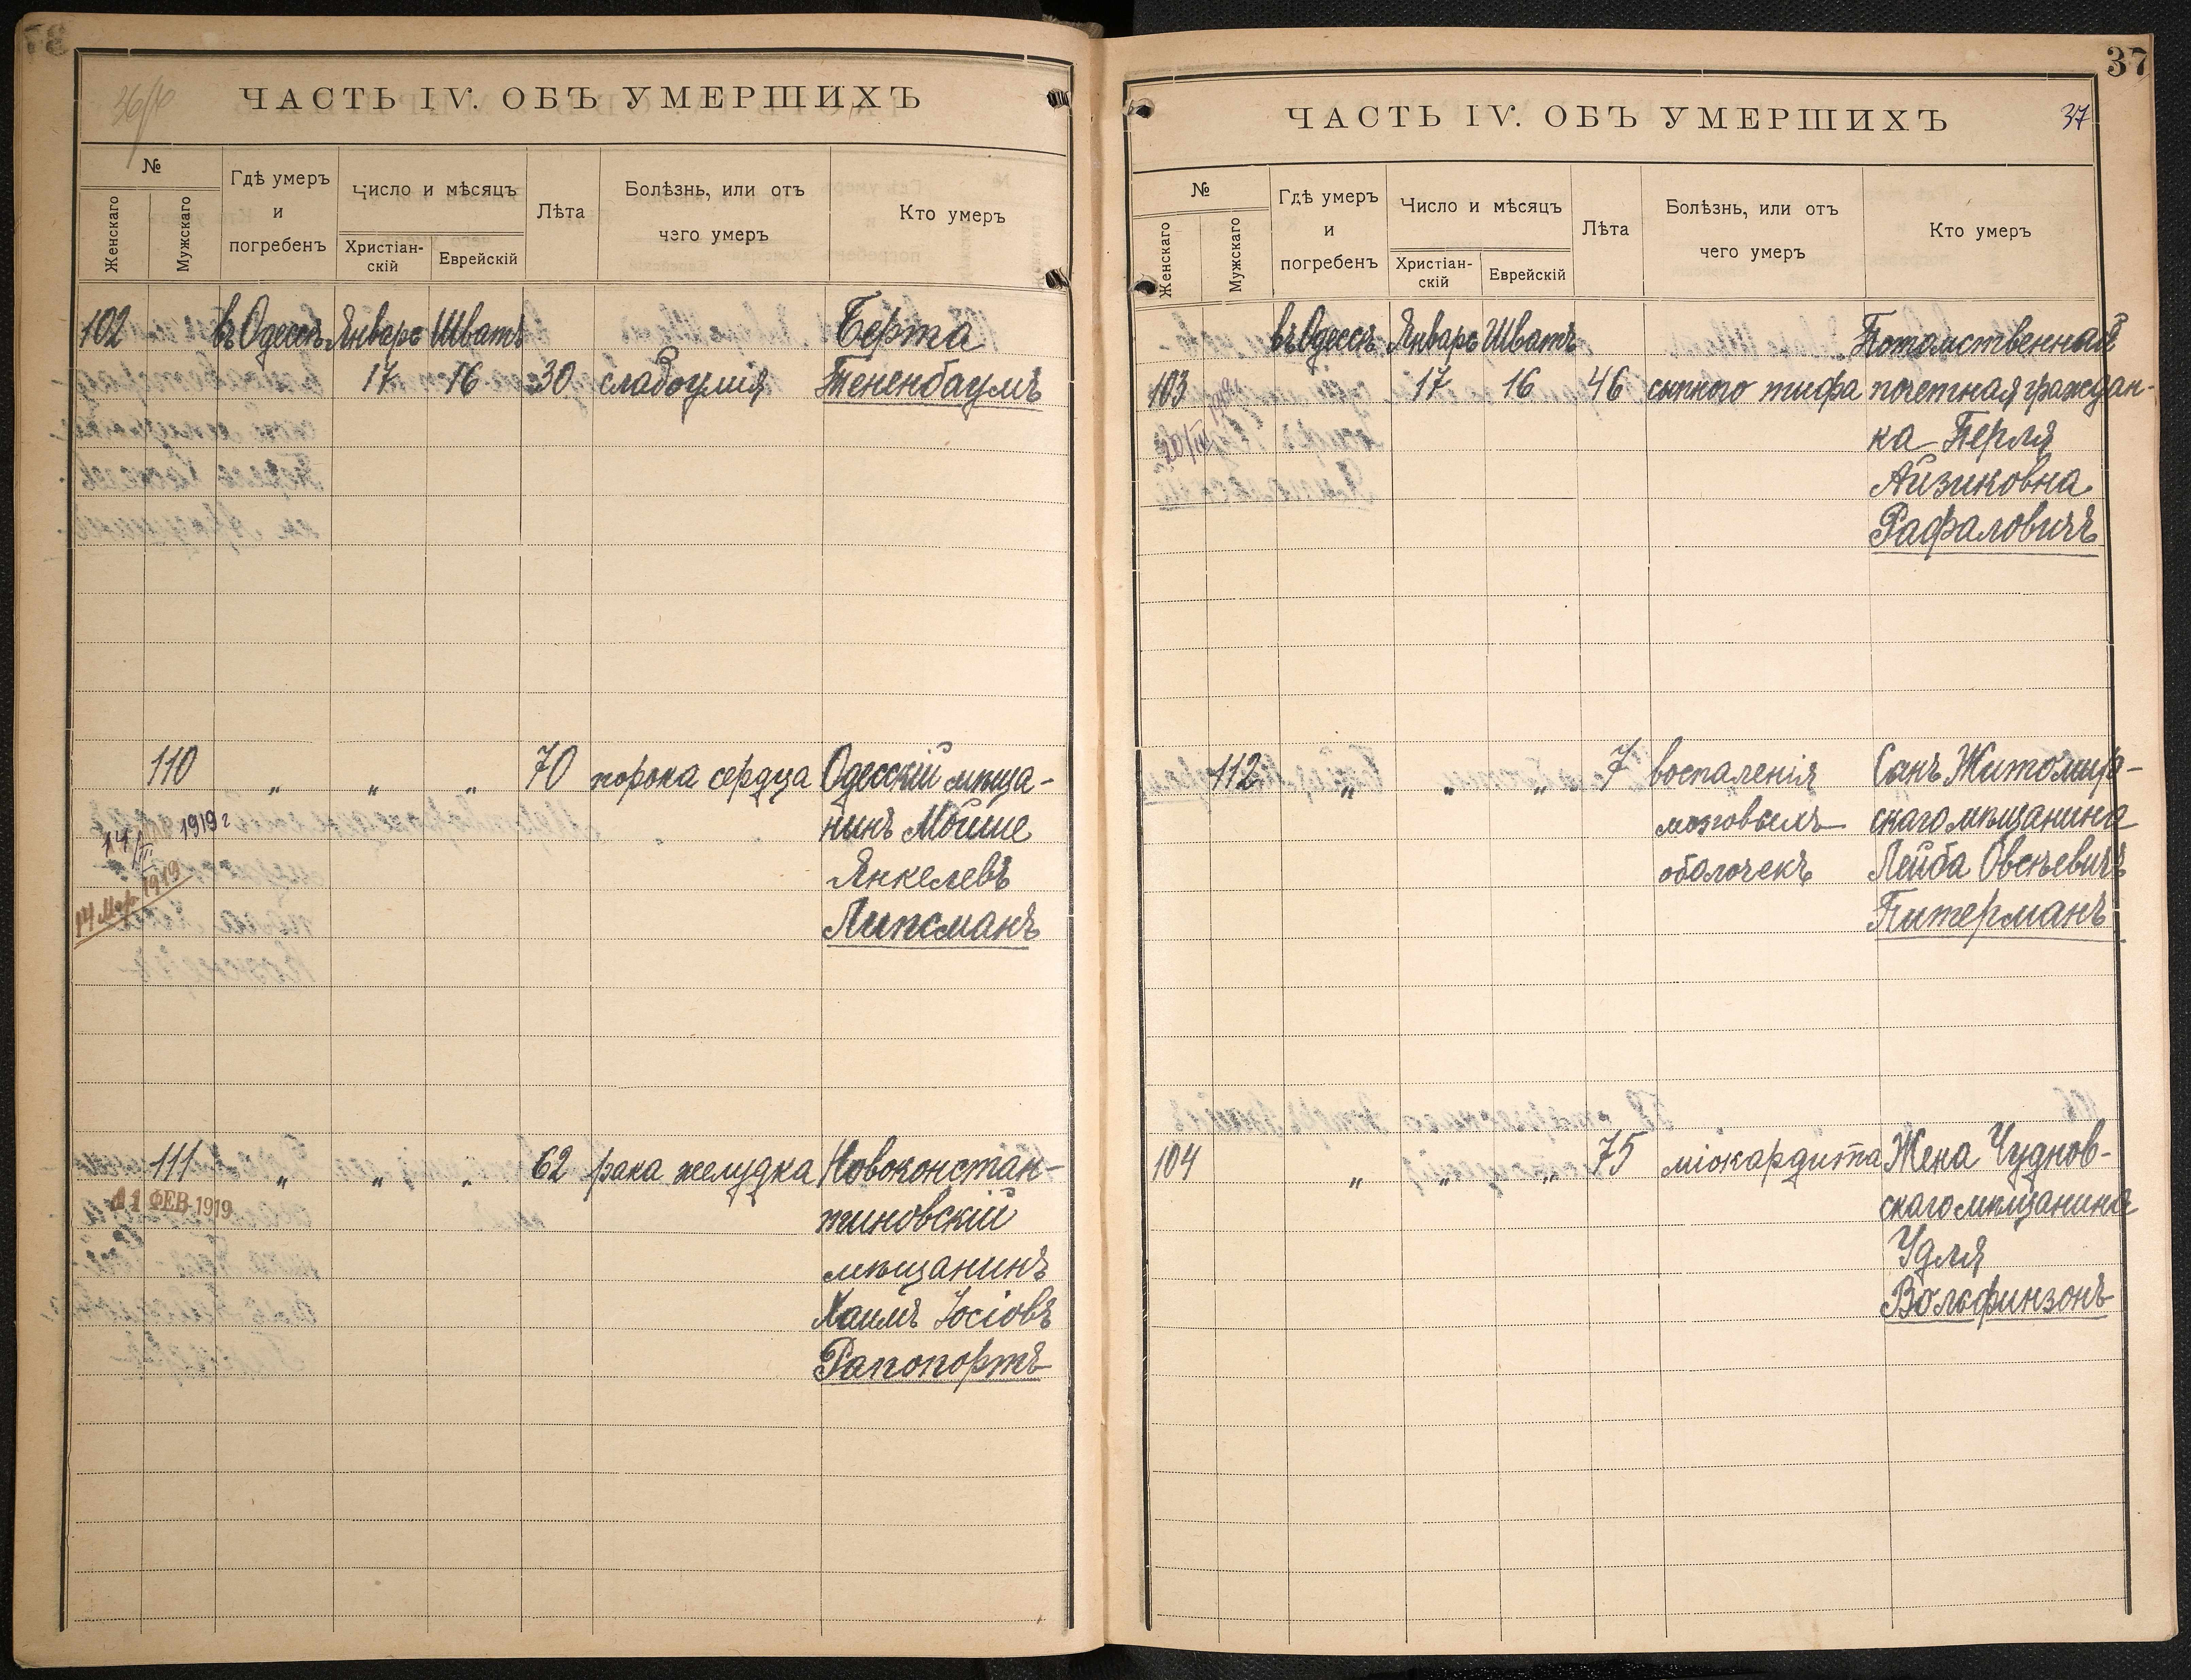 ЧАСТЬ IV. ОБЪ УМЕРШИХЪ
№
Женскаго
Мужскаго
Гдѣ умеръ
и
погребенъ
Число и мѣсяцъ
Христіан-
скій
Еврейскій
Лѣта
Болѣзнь, или отъ
чего умеръ
Кто умеръ
102 въ Одессѣ Январь Шватъ Берта
17 16 30 слабоумія Тененбаумъ
110 „ „ „ 70 порока сердца Одесскій мѣща-
нинъ Мойше
Янкелевъ
Липсманъ
14/III 1919 г
14 Мар. 1919
111 „ „ „ 62 рака желудка Новоконстан-
тиновскій
мѣщанинъ
Хаимъ Іосіовъ
Рапопортъ
11 ФЕВ 1919
37
ЧАСТЬ IV. ОБЪ УМЕРШИХЪ 37
№
Женскаго
Мужскаго
Гдѣ умеръ
и
погребенъ
Число и мѣсяцъ
Христіан-
скій
Еврейскій
Лѣта
Болѣзнь, или отъ
чего умеръ
Кто умеръ
въ Одессѣ Январь Шватъ Потомственная
103 17 16 46 сыпного тифа почетная граждан-
ка Перля
Айзиковна
Рафаловичъ
112 „ „ „ 7 воспаленія Сынъ Житомир-
мозговыхъ скаго мѣщанина
оболочекъ Лейба Овсѣевичъ
Питерманъ
104 „ „ „ 75 міокардита Жена Чуднов-
скаго мѣщанина
Удля
Вольфинзонъ